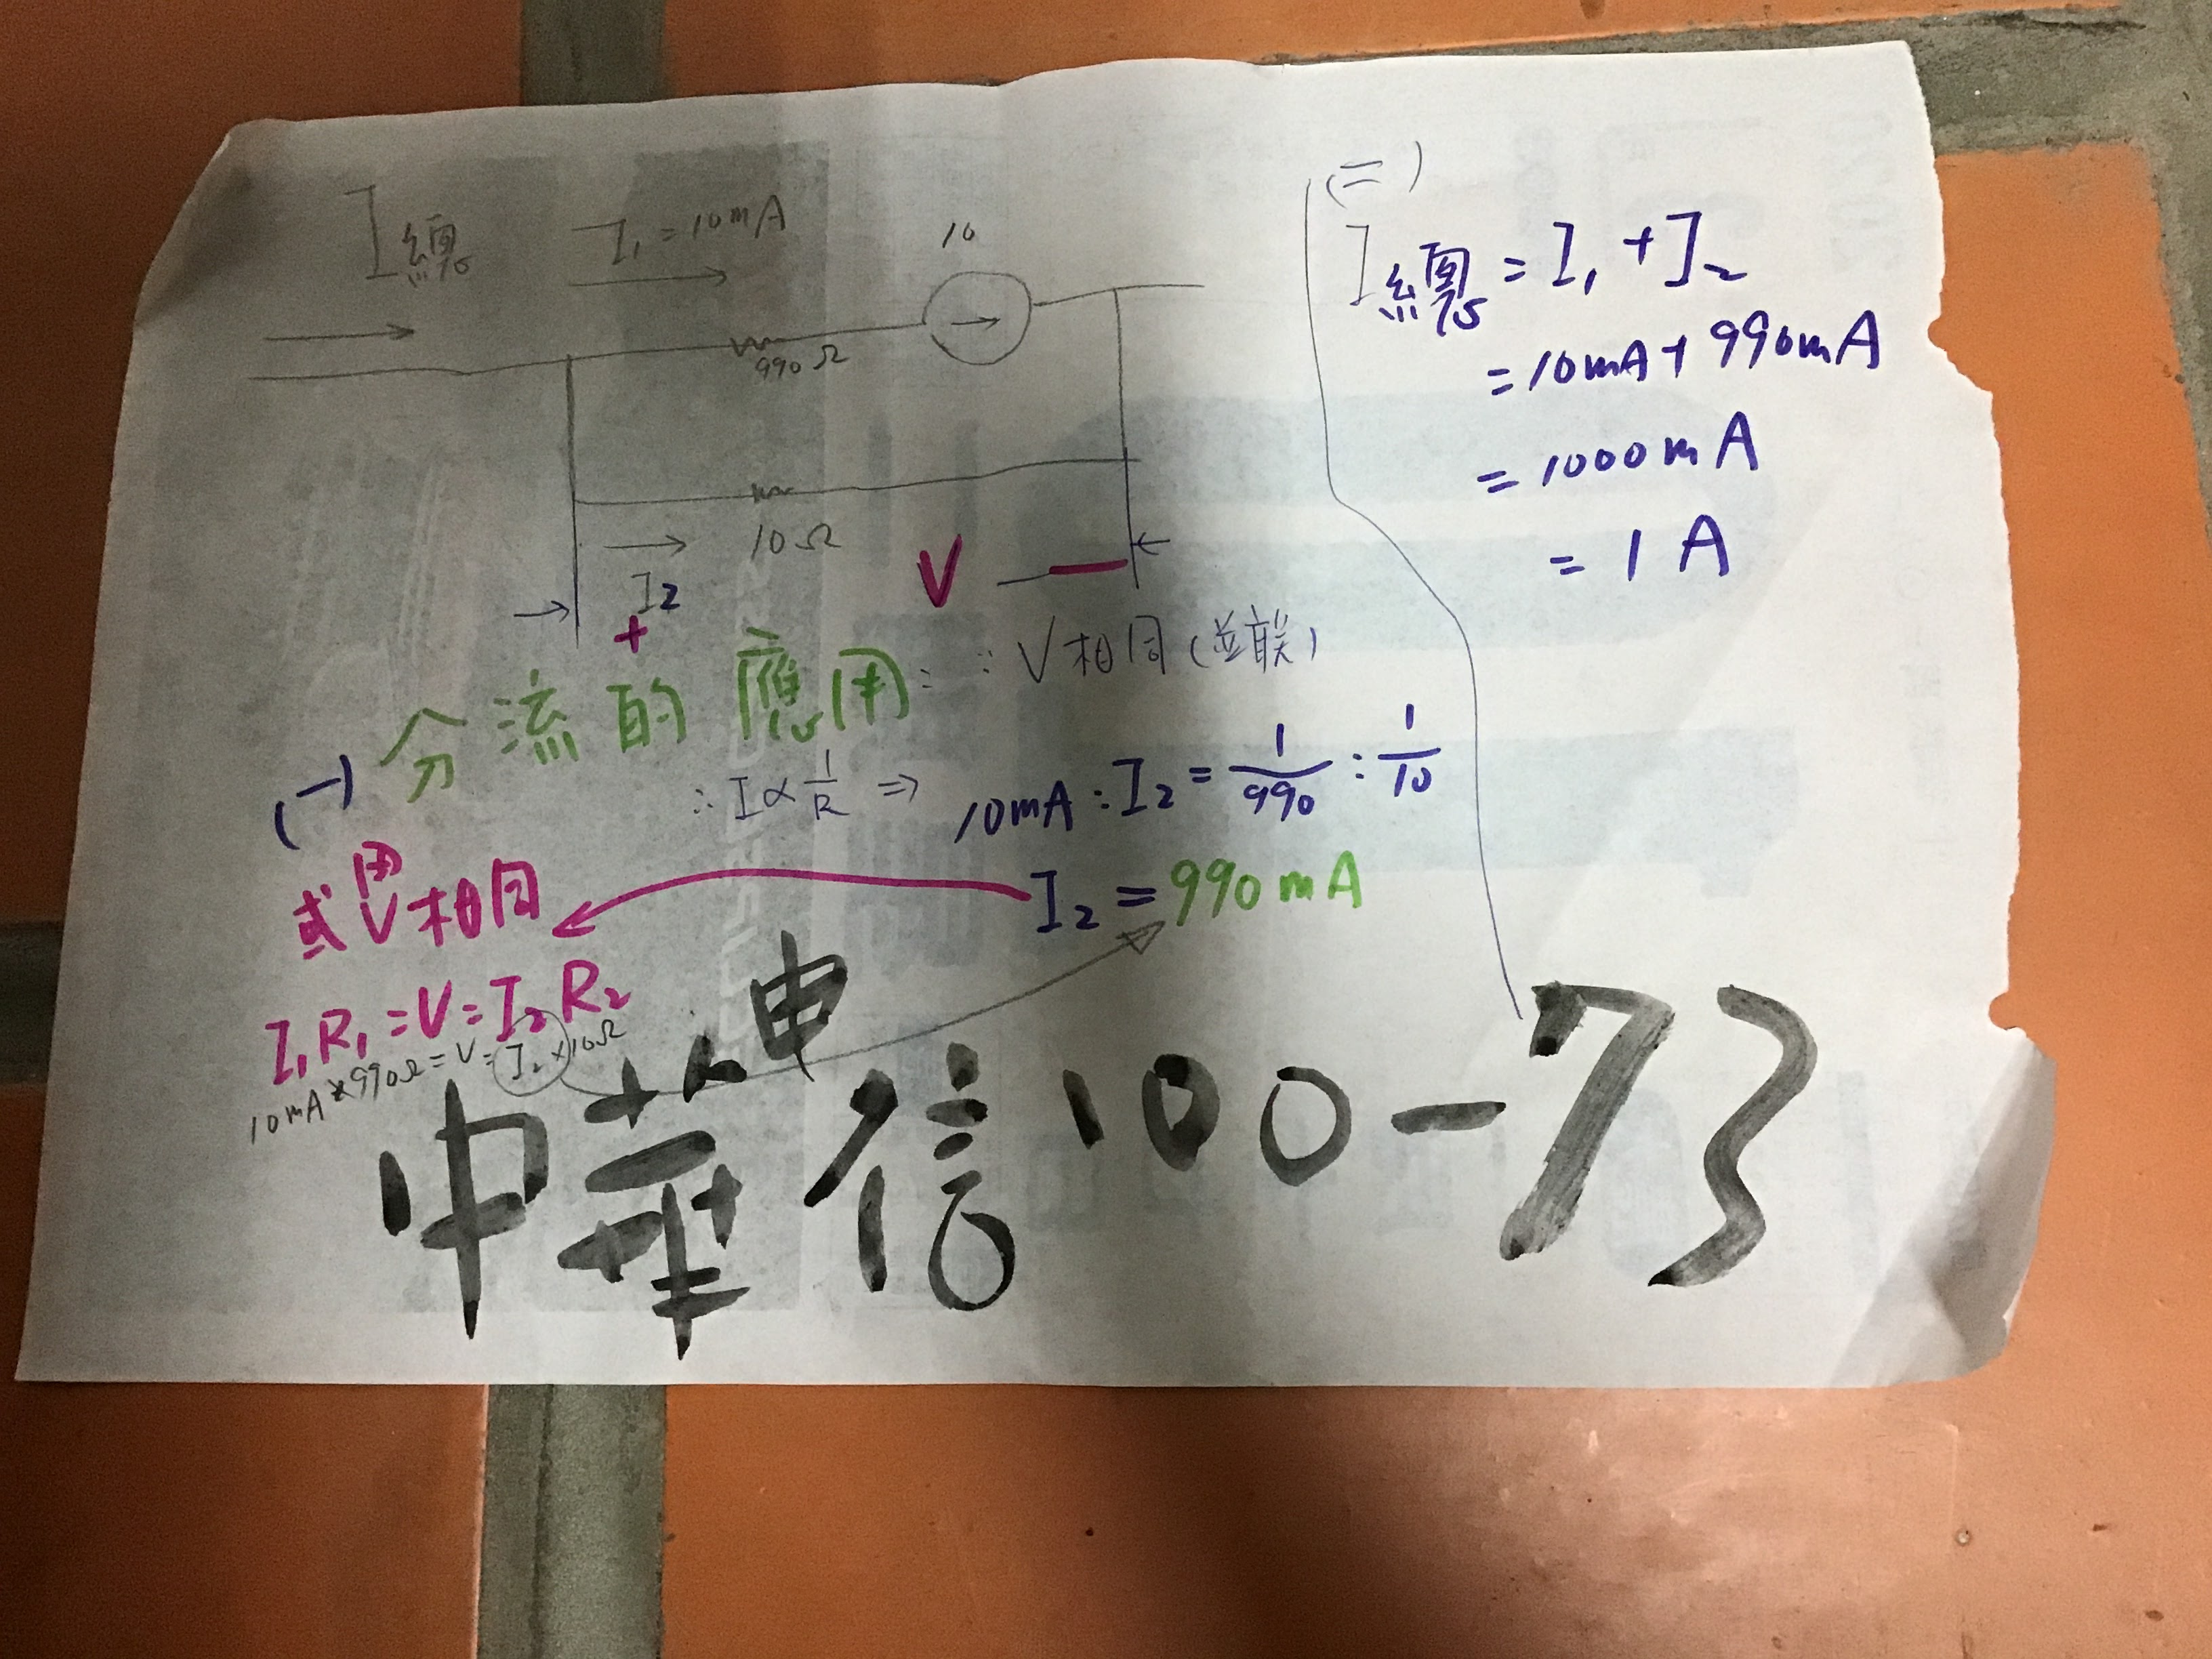 I總
I₁=10mA
10
990Ω
10Ω
I2
+
V
(一) 分流的應用: ∵V相同(並联)
∴I∝1/R ⇒ 10mA:I₂=1/990:1/10
I₂=990mA
或用V相同
I₁R₁=V=I₂R₂
10mA×990Ω=V=I₂×10Ω
(二)
I總=I₁+I₂
=10mA+990mA
=1000mA
=1A
中華信100-73